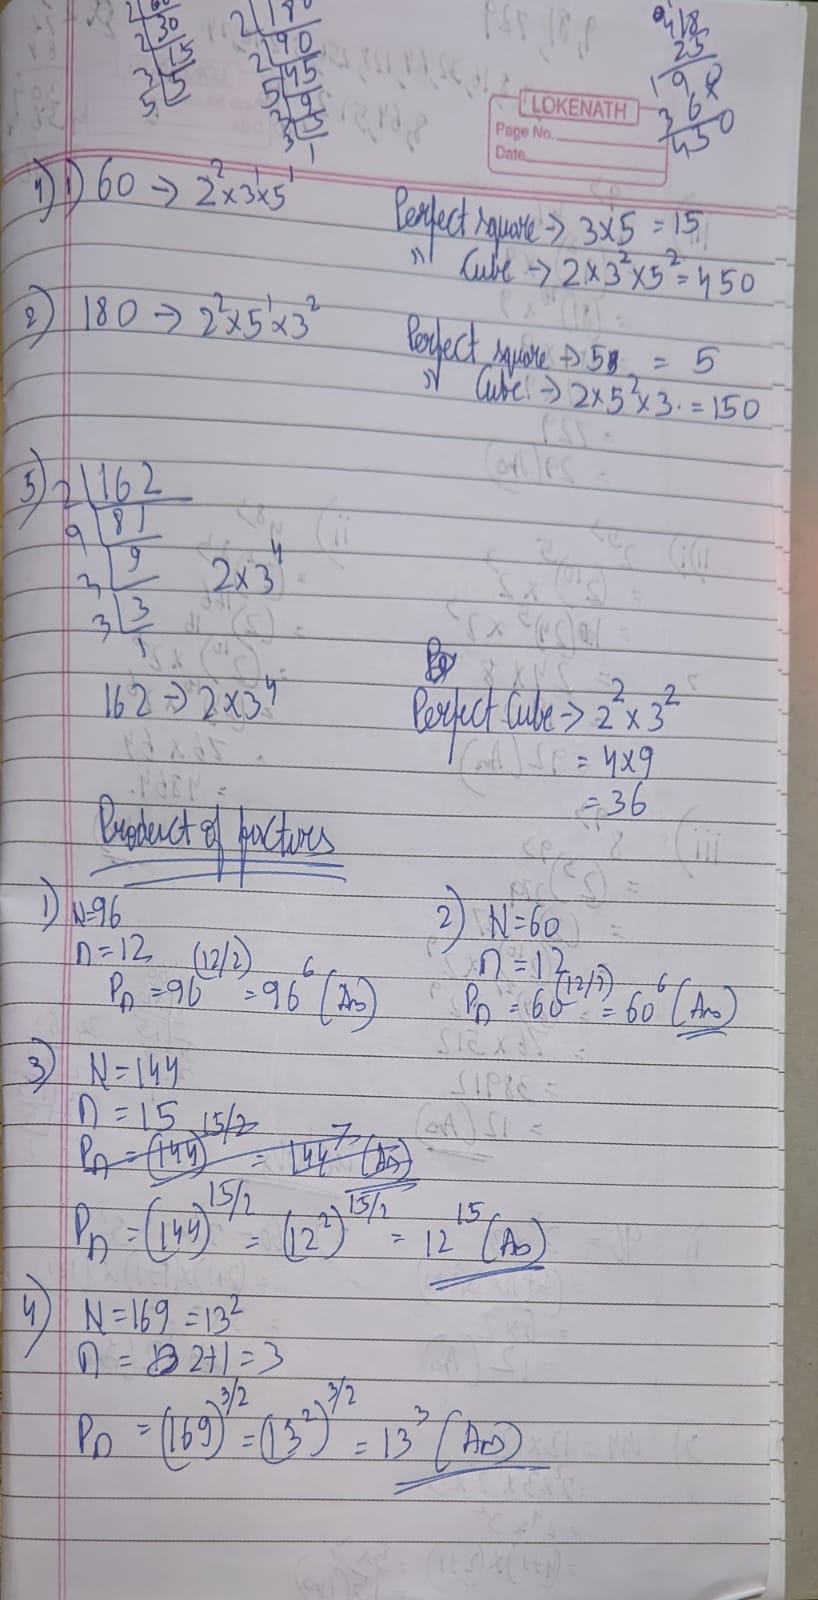 2 60
2 30
3 15
5 5
2 180
2 90
5 45
3 9
3 3
1
418
25
190
36
450
LOKENATH
Page No.
Date
4) 1) 60 → 2² × 3¹ × 5¹
Perfect square → 3 × 5 = 15
" Cube → 2 × 3² × 5² = 450
2) 180 → 2² × 5¹ × 3²
Perfect square → 5 = 5
" Cube → 2 × 5² × 3 = 150
5) 2 162
9 81
3 9
3 3
1
2 × 3⁴
162 → 2 × 3⁴
Perfect Cube → 2² × 3²
= 4 × 9
= 36
Product of factors
1) N = 96
n = 12
Pn = 96^(12/2) = 96⁶ (Ans)
2) N = 60
n = 12
Pn = 60^(12/2) = 60⁶ (Ans)
3) N = 144
n = 15
Pn = (144)^15/2 = 144⁷ (Ans)
Pn = (144)^15/2 = (12²)^15/2 = 12¹⁵ (Ans)
4) N = 169 = 13²
n = 2+1 = 3
Pn = (169)^3/2 = (13²)^3/2 = 13³ (Ans)